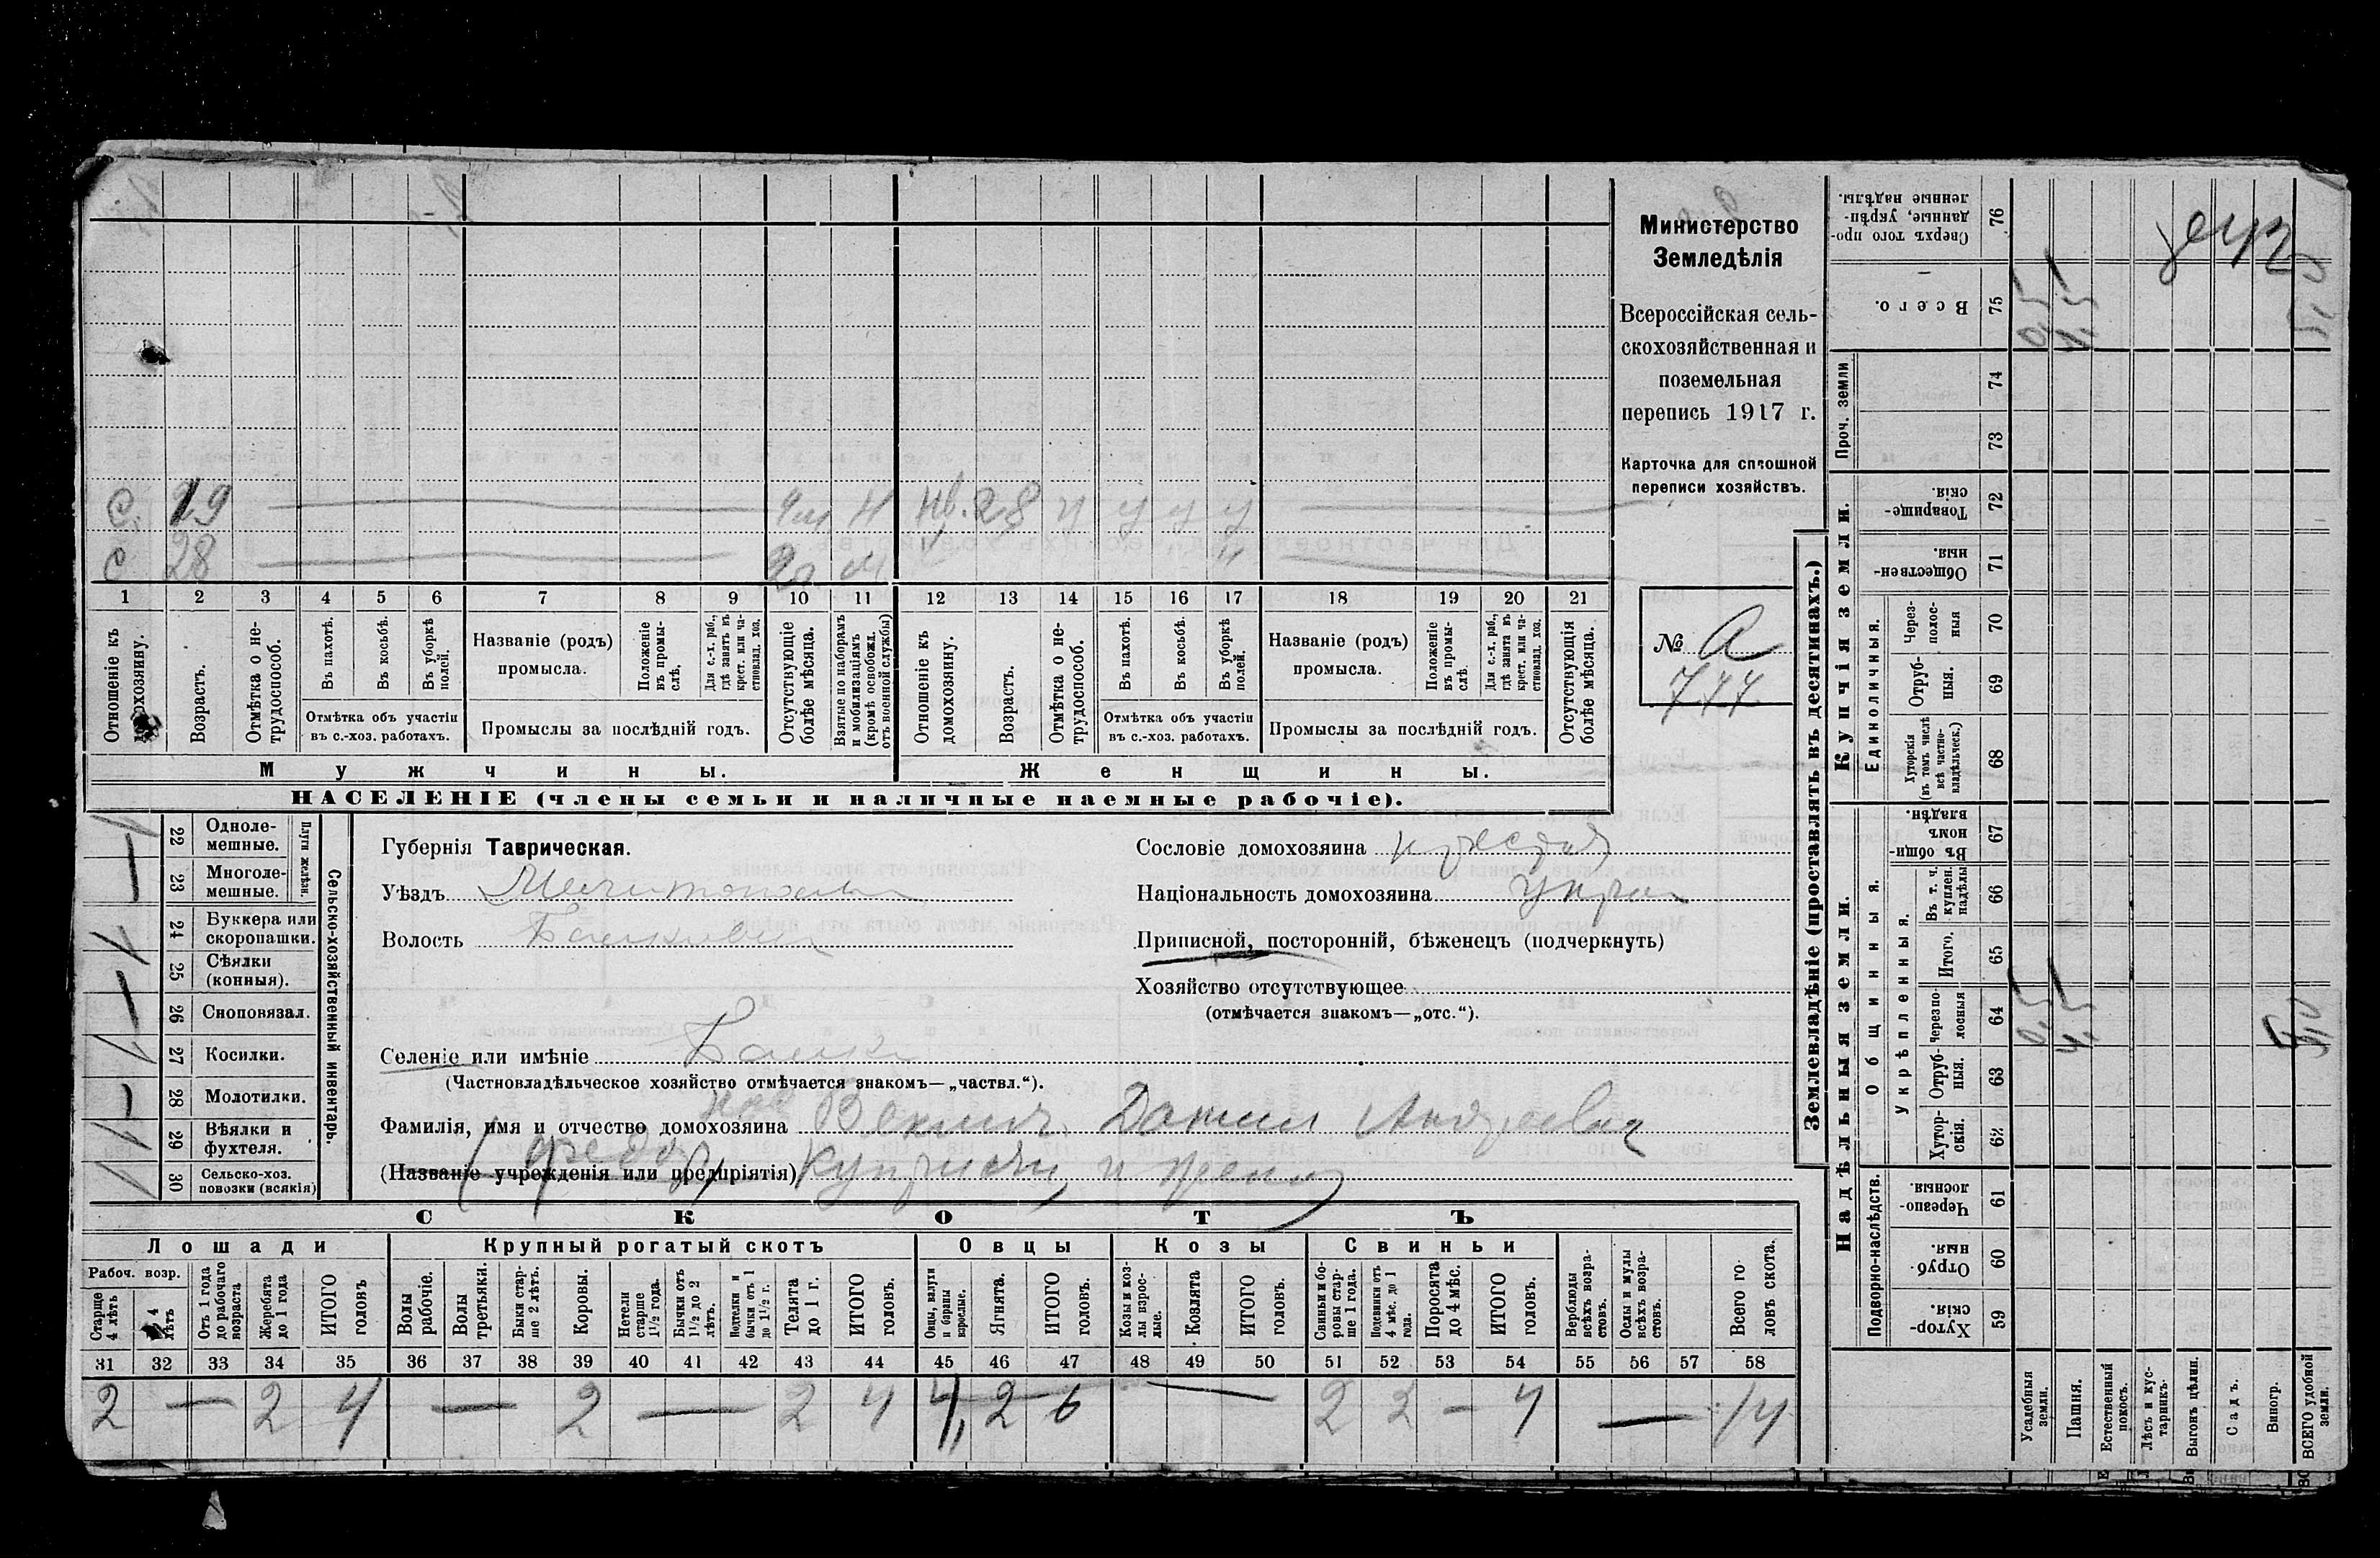 Министерство
Земледѣлія
Всероссійская сель-
скохозяйственная и
поземельная
перепись 1917 г.
Карточка для сплошной
переписи хозяйствъ.
№ А
777
С. 19 4 н 28 у у у у
С 28
1 2 3 4 5 6 7 8 9 10 11 12 13 14 15 16 17 18 19 20 21
Отношеніе къ домохозяину.
Возрастъ.
Отмѣтка о не-трудоспособ.
Въ пахотѣ.
Въ косьбѣ.
Въ уборкѣ полей.
Отмѣтка объ участіи
въ с.-хоз. работахъ.
Названіе (родъ)
промысла.
Положеніе въ промы-слѣ.
Для с.-х. раб., гдѣ занятъ въ крест. или ча-стновлад. хоз.
Промыслы за послѣдній годъ.
Отсутствующіе болѣе мѣсяца.
Взятые по наборамъ и мобилизаціямъ (кромѣ освобожд. отъ военной службы)
Отношеніе къ домохозяину.
Возрастъ.
Отмѣтка о не-трудоспособ.
Въ пахотѣ.
Въ косьбѣ.
Въ уборкѣ полей.
Отмѣтка объ участіи
въ с.-хоз. работахъ.
Названіе (родъ)
промысла.
Положеніе въ промы-слѣ.
Для с.-х. раб., гдѣ занята въ крест. или ча-стновлад. хоз.
Промыслы за послѣдній годъ.
Отсутствующія болѣе мѣсяца.
Мужчины.
Женщины.
НАСЕЛЕНІЕ (члены семьи и наличные наемные рабочіе).
22 Одноле-мешные.
23 Многоле-мешные.
Плуги желѣзн.
24 Буккера или скоропашки.
25 Сѣялки (конныя).
26 Сноповязал.
27 Косилки.
28 Молотилки.
29 Вѣялки и фухтеля.
30 Сельско-хоз. повозки (всякія)
Сельско-хозяйственный инвентарь.
Губернія Таврическая.
Уѣздъ
Волость
Селеніе или имѣніе
(Частновладѣльческое хозяйство отмѣчается знакомъ—„частвл.“).
Фамилія, имя и отчество домохозяина
(Названіе учрежденія или предпріятія)
Сословіе домохозяина
Національность домохозяина
Приписной, посторонній, бѣженецъ (подчеркнуть)
Хозяйство отсутствующее
(отмѣчается знакомъ—„отс.“).
СКОТЪ
Лошади
Крупный рогатый скотъ
Овцы
Козы
Свиньи
Рабоч. возр.
Старше 4 лѣтъ
4 лѣтъ
Отъ 1 года до рабочаго возраста
Жеребята до 1 года
ИТОГО головъ
Волы рабочіе.
Волы третьяки.
Быки стар-ше 2 лѣтъ.
Коровы.
Нетели старше 1½ года.
Бычки отъ 1½ до 2 лѣтъ.
Подтелки и бычки отъ 1 до 1½ г.
Телята до 1 г.
ИТОГО головъ.
Овцы, валухи и бараны взрослые.
Ягнята.
ИТОГО головъ.
Козы и коз-лы взрос-лые.
Козлята
ИТОГО головъ.
Свиньи и бо-ровы стар-ше 1 года.
Подсвинки отъ 4 мѣс. до 1 года.
Поросята до 4 мѣс.
ИТОГО головъ.
Верблюды всѣхъ возра-стовъ.
Ослы и мулы всѣхъ возра-стовъ.
Всего го-ловъ скота.
31 32 33 34 35 36 37 38 39 40 41 42 43 44 45 46 47 48 49 50 51 52 53 54 55 56 57 58
2 — 2 4 — 2 — 2 4 4 2 6 — 2 2 — 4 — 14
Землевладѣніе (проставлять въ десятинахъ.)
Надѣльныя земли.
Купчія земли.
Проч. земли
Подворно-наслѣдств.
Общинныя.
Укрѣпленныя.
Единоличныя.
Сверхъ того про-данные, укрѣп-ленные надѣлы. 76
Всего. 75
74
73
Товарище-скія. 72
Обществен-ныя. 71
Через-полос-ныя 70
Отруб-ныя. 69
Хуторскія (въ томъ числѣ всѣ частно-владѣльческ.) 68
Въ общи-номъ владѣн. 67
Въ т. ч. куплен. надѣлы 66
Итого. 65
Черезпо-лосныя 64
Отруб-ныя. 63
Хутор-скія. 62
Черезпо-лосныя. 61
Отруб-ныя. 60
Хутор-скія. 59
Усадебныя земли.
Пашня.
Естественный покосъ.
Лѣсъ и кус-тарникъ.
Выгонъ цѣлин.
Садъ.
Виногр.
ВСЕГО удобной земли.
0,5
4,5